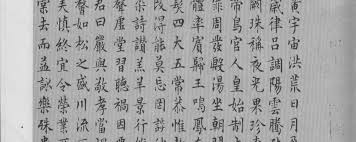 黃宇宙洪荒日月
歲律呂調陽雲騰
闕珠稱夜光果珍
帝鳥官人皇始制
罪周發殷湯坐朝
體率賓歸王鳴鳳
髮四大五常恭惟
改得能莫忘罔談
染詩讚羔羊景行
聲虛堂習聽禍因
君曰嚴與敬孝當
馨如松之盛川流
美慎終宜令榮業
棠去而益詠樂殊